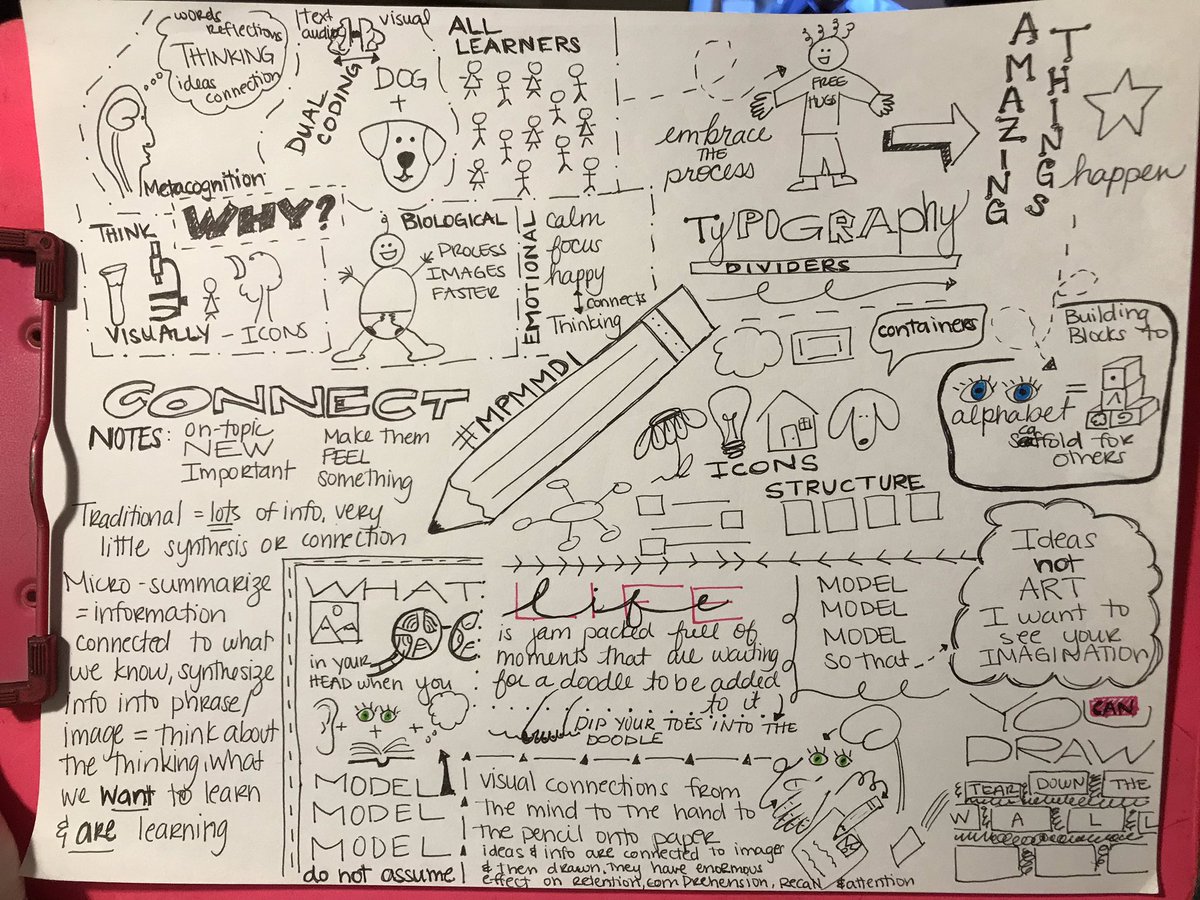 words
reflections
THINKING
ideas
connection
Metacognition
text
audio
visual
DUAL
CODING
DOG
+
ALL
LEARNERS
embrace
THE
process
FREE
HUGS
AMAZING
THINGS
happen
WHY?
THINK
VISUALLY - ICONS
BIOLOGICAL
PROCESS
IMAGES
FASTER
EMOTIONAL
calm
focus
happy
connects
Thinking
TYPOGRAPHY
DIVIDERS
containers
Building
Blocks to
=
alphabet
scaffold for
others
#MPMMDI
ICONS
STRUCTURE
CONNECT
NOTES:
on-topic
NEW
Important
Make them
FEEL
something
Traditional = lots of info, very
little synthesis or connection
Micro-summarize
= information
connected to what
we know, synthesize
info into phrase/
image = think about
the thinking, what
we want to learn
& are learning
WHAT:
in your
HEAD when you
+ + +
MODEL
MODEL
MODEL
do not assume
life
is jam packed full of
moments that are waiting
for a doodle to be added
to it
DIP YOUR TOES INTO THE
DOODLE
MODEL
MODEL
MODEL
so that
Ideas
not
ART
I want to
see your
IMAGINATION
visual connections from
the mind to the hand to
the pencil onto paper
ideas & info are connected to imager
& then drawn, they have enormous
effect on retention, comprehension, recall & attention
YOU CAN
DRAW
& TEAR DOWN THE
W A L L